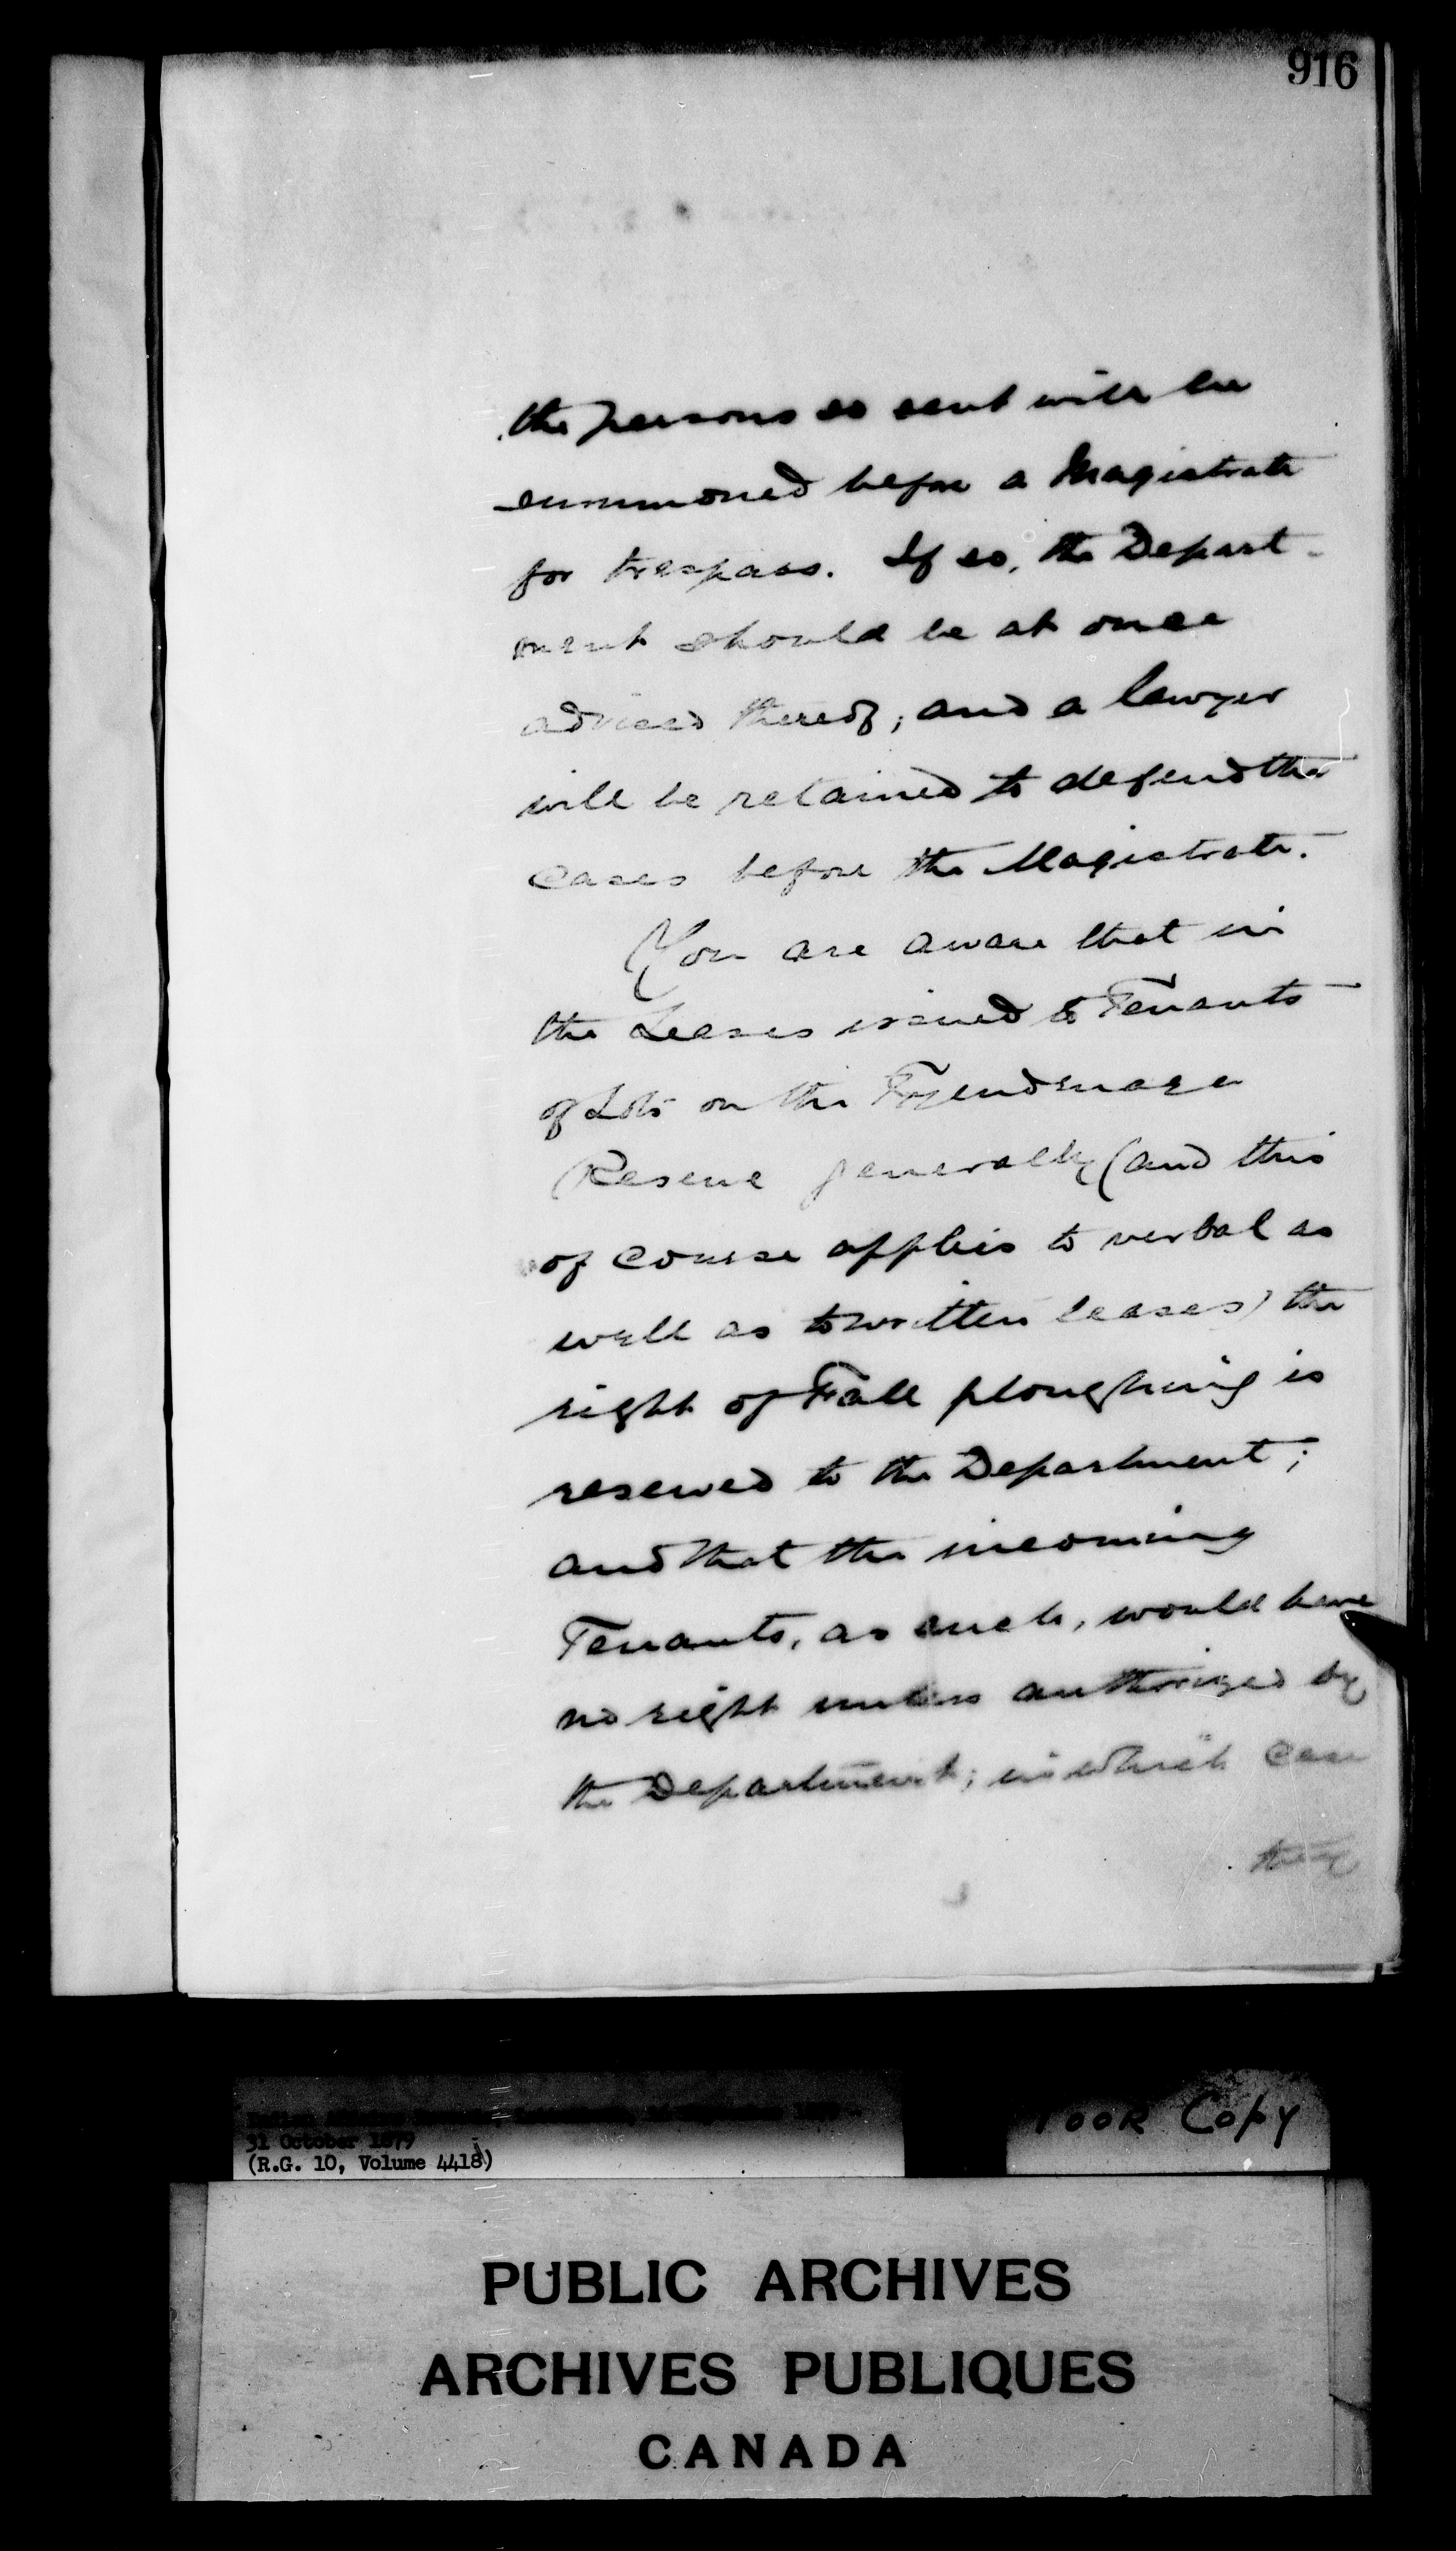 916
the persons so sent will be
summoned before a Magistrate
for trespass. If so, the Depart-
ment should be at once
advised thereof; and a lawyer
will be retained to defend the
cases before the Magistrate.
You are aware that in
the Leases issued to Tenants
of Lots on the Tyendenaga
Reserve generally (and this
of course applies to verbal as
well as to written leases) the
right of Fall ploughing is
reserved to the Department;
and that the incoming
Tenants, as such, would have
no right unless authorized by
the Department; in which case
they
31 October 1879
(R.G. 10, Volume 4418)
POOR COPY
PUBLIC ARCHIVES
ARCHIVES PUBLIQUES
CANADA